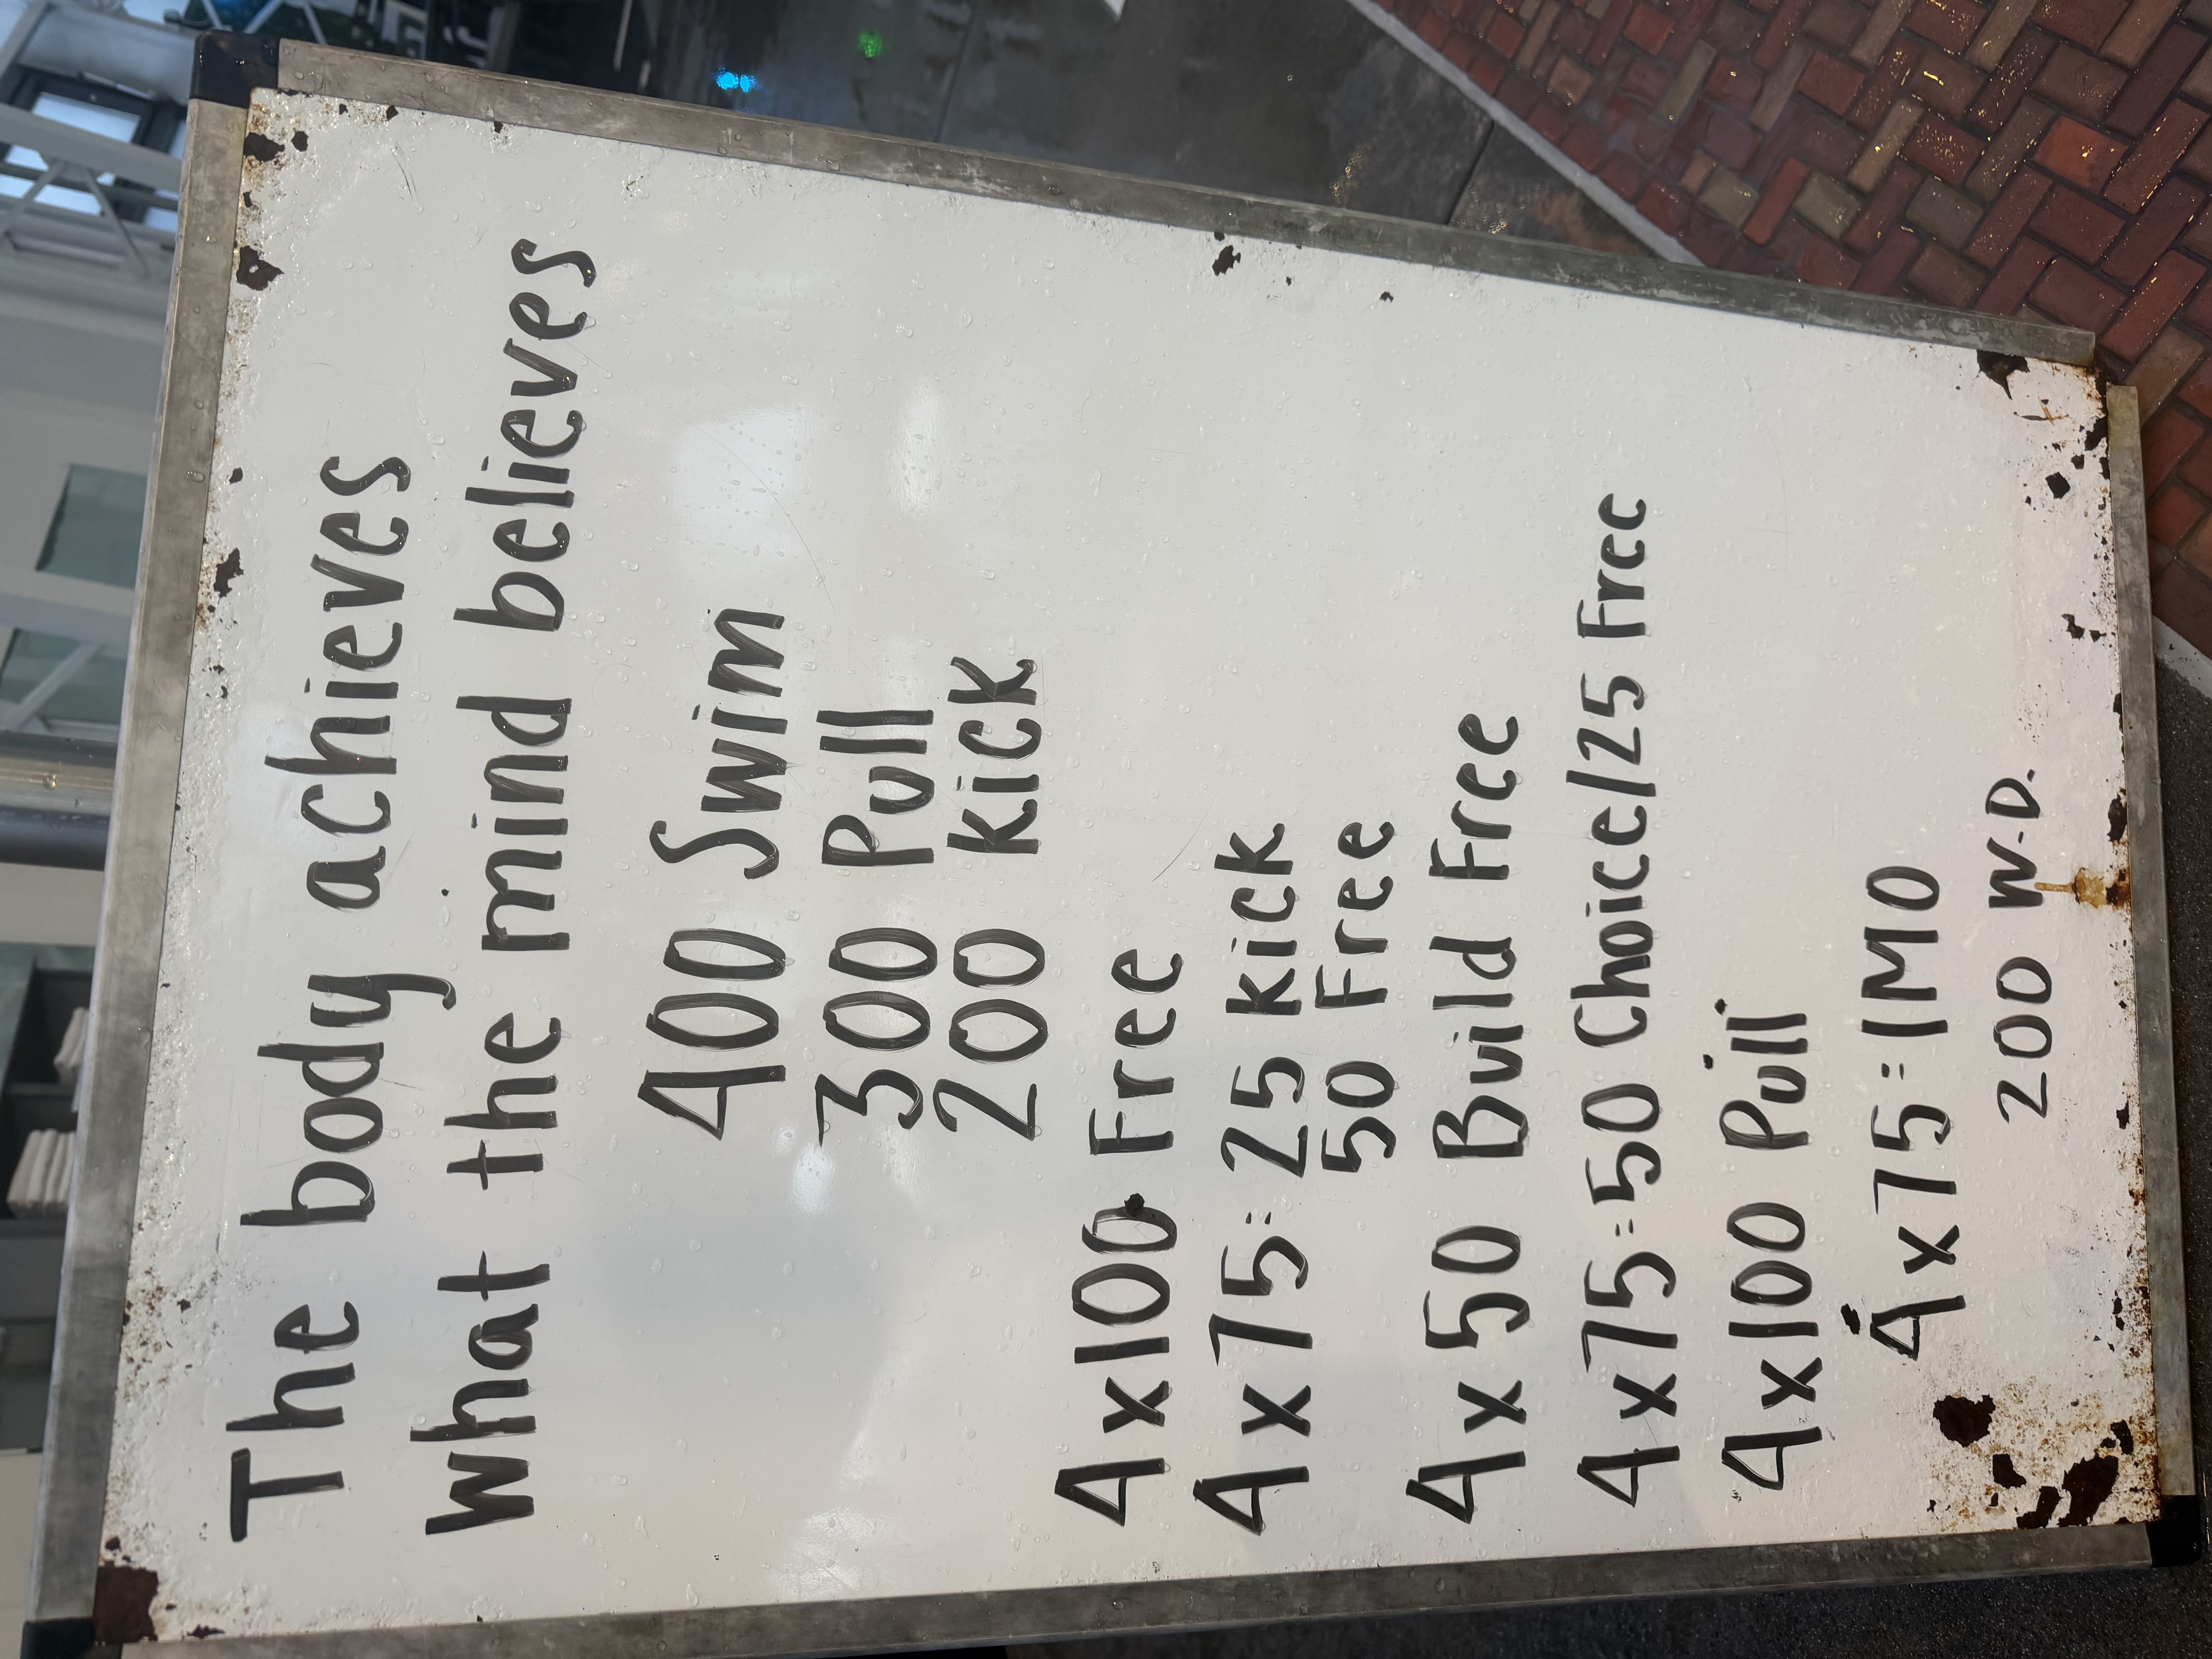 The body achieves
what the mind believes
400 Swim
300 Pull
200 Kick
4x100 Free
4x75= 25 Kick
50 Free
4x50 Build Free
4x75=50 Choice/25 Free
4x100 Pull
4x75=IMO
200 W.D.